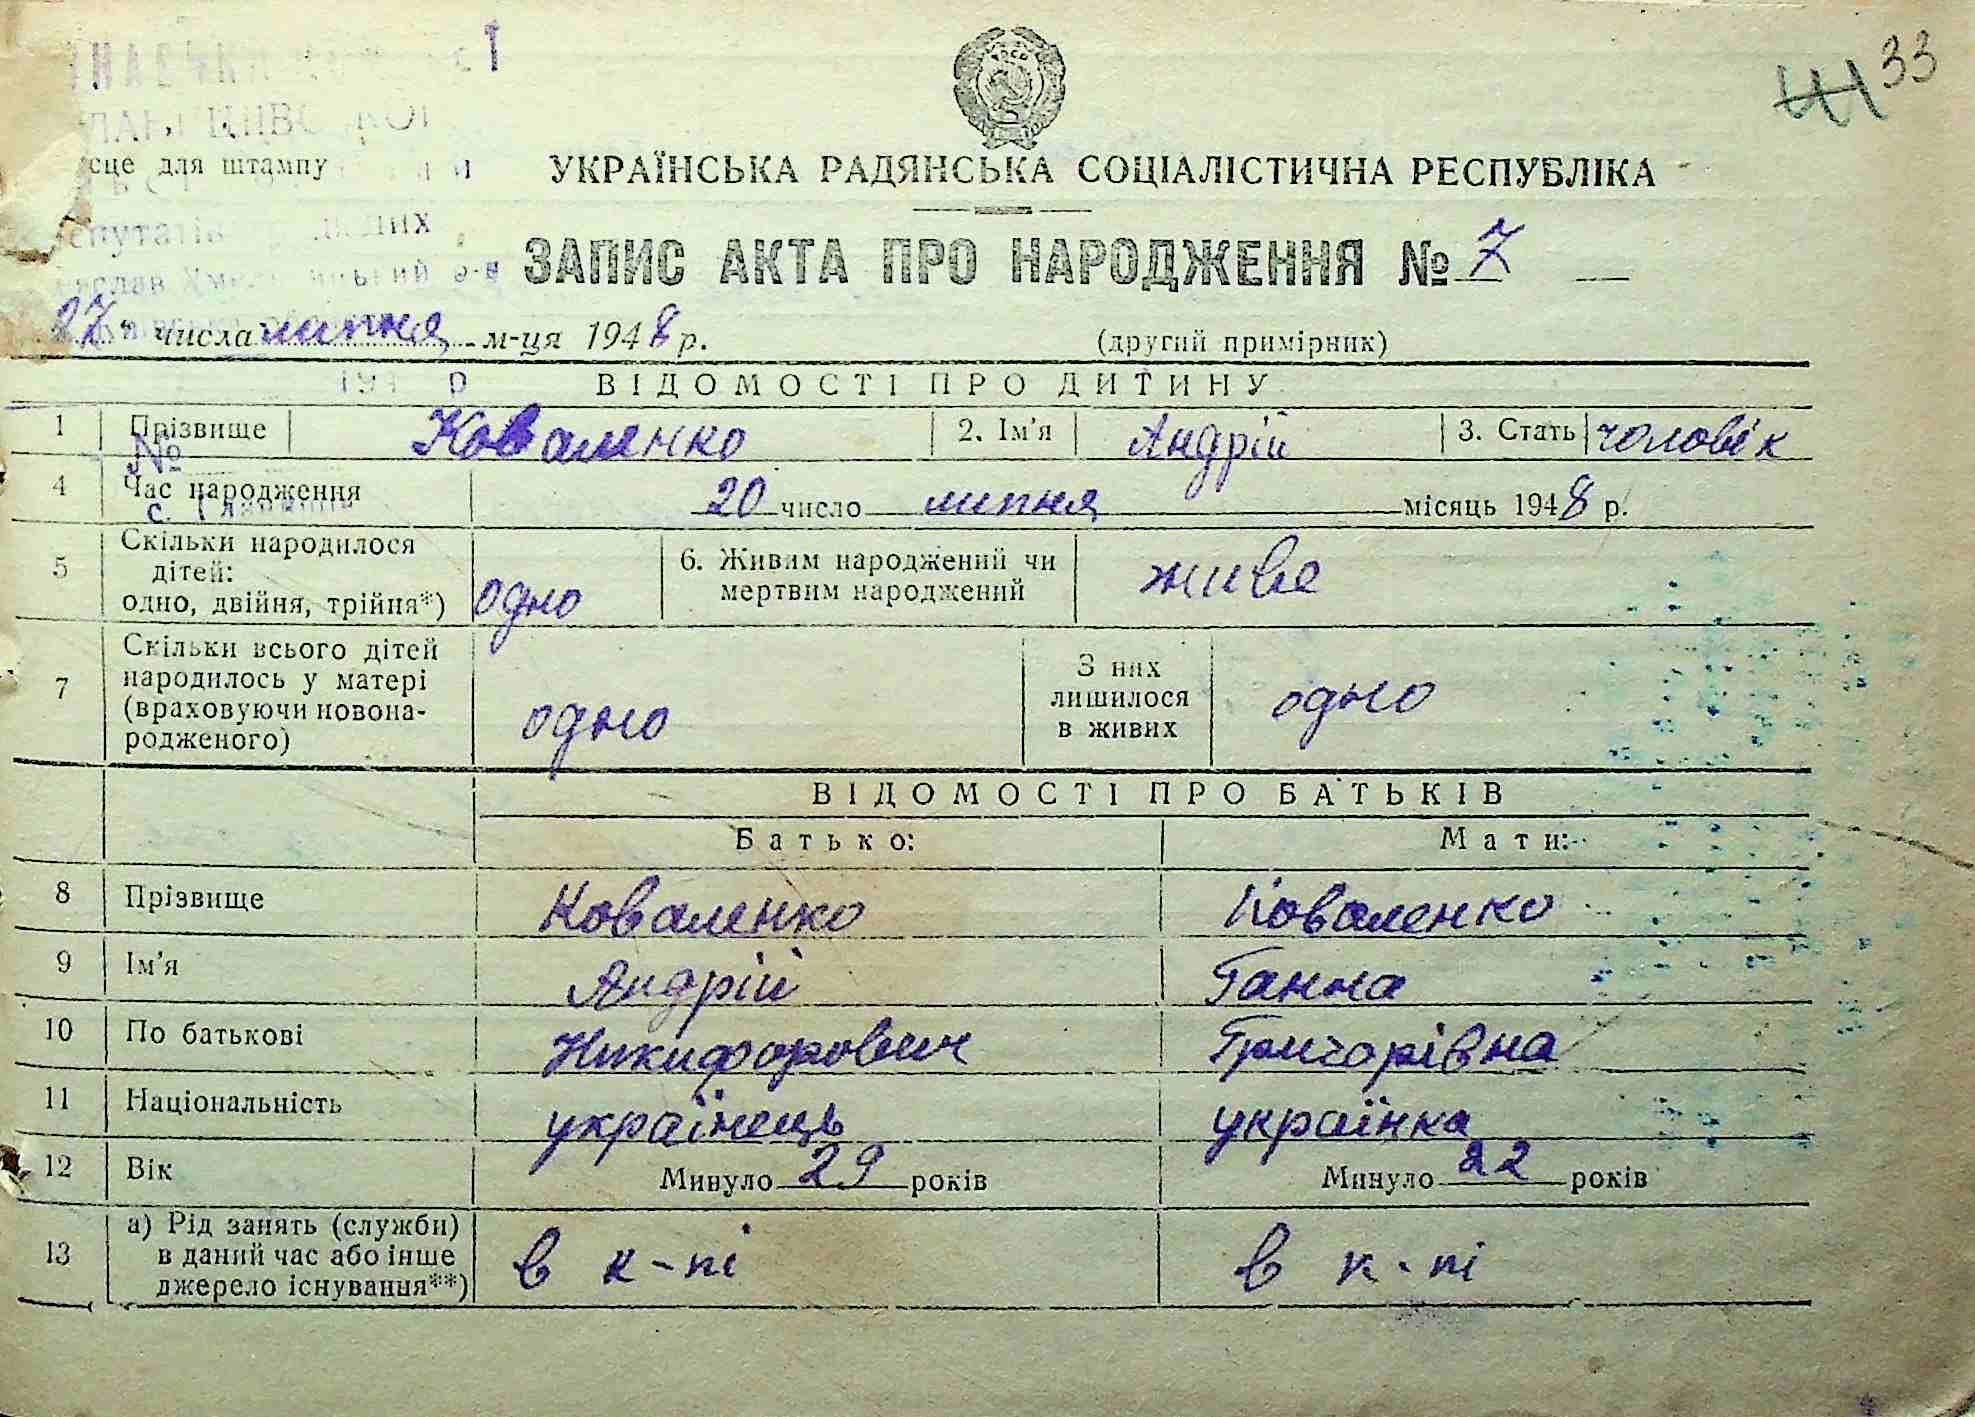 33
сце для штампу
УКРАЇНСЬКА РАДЯНСЬКА СОЦІАЛІСТИЧНА РЕСПУБЛІКА
ЗАПИС АКТА ПРО НАРОДЖЕННЯ № 7
27 числа липня м-ця 1948 р. (другий примірник)
ВІДОМОСТІ ПРО ДИТИНУ
1 Прізвище Коваленко 2. Ім'я Андрій 3. Стать чоловік
№
4 Час народження 20 число липня місяць 1948 р.
с.
5 Скільки народилося
дітей:
одно, двійня, трійня*) одно 6. Живим народжений чи
мертвим народжений живе
7 Скільки всього дітей
народилось у матері
(враховуючи новона-
родженого) одно З них
лишилося
в живих одно
ВІДОМОСТІ ПРО БАТЬКІВ
Батько: Мати:
8 Прізвище Коваленко Коваленко
9 Ім'я Андрій Ганна
10 По батькові Никифорович Григорівна
11 Національність українець українка
12 Вік Минуло 29 років Минуло 22 років
13 а) Рід занять (служби)
в даний час або інше
джерело існування**) в к-пі в к-пі